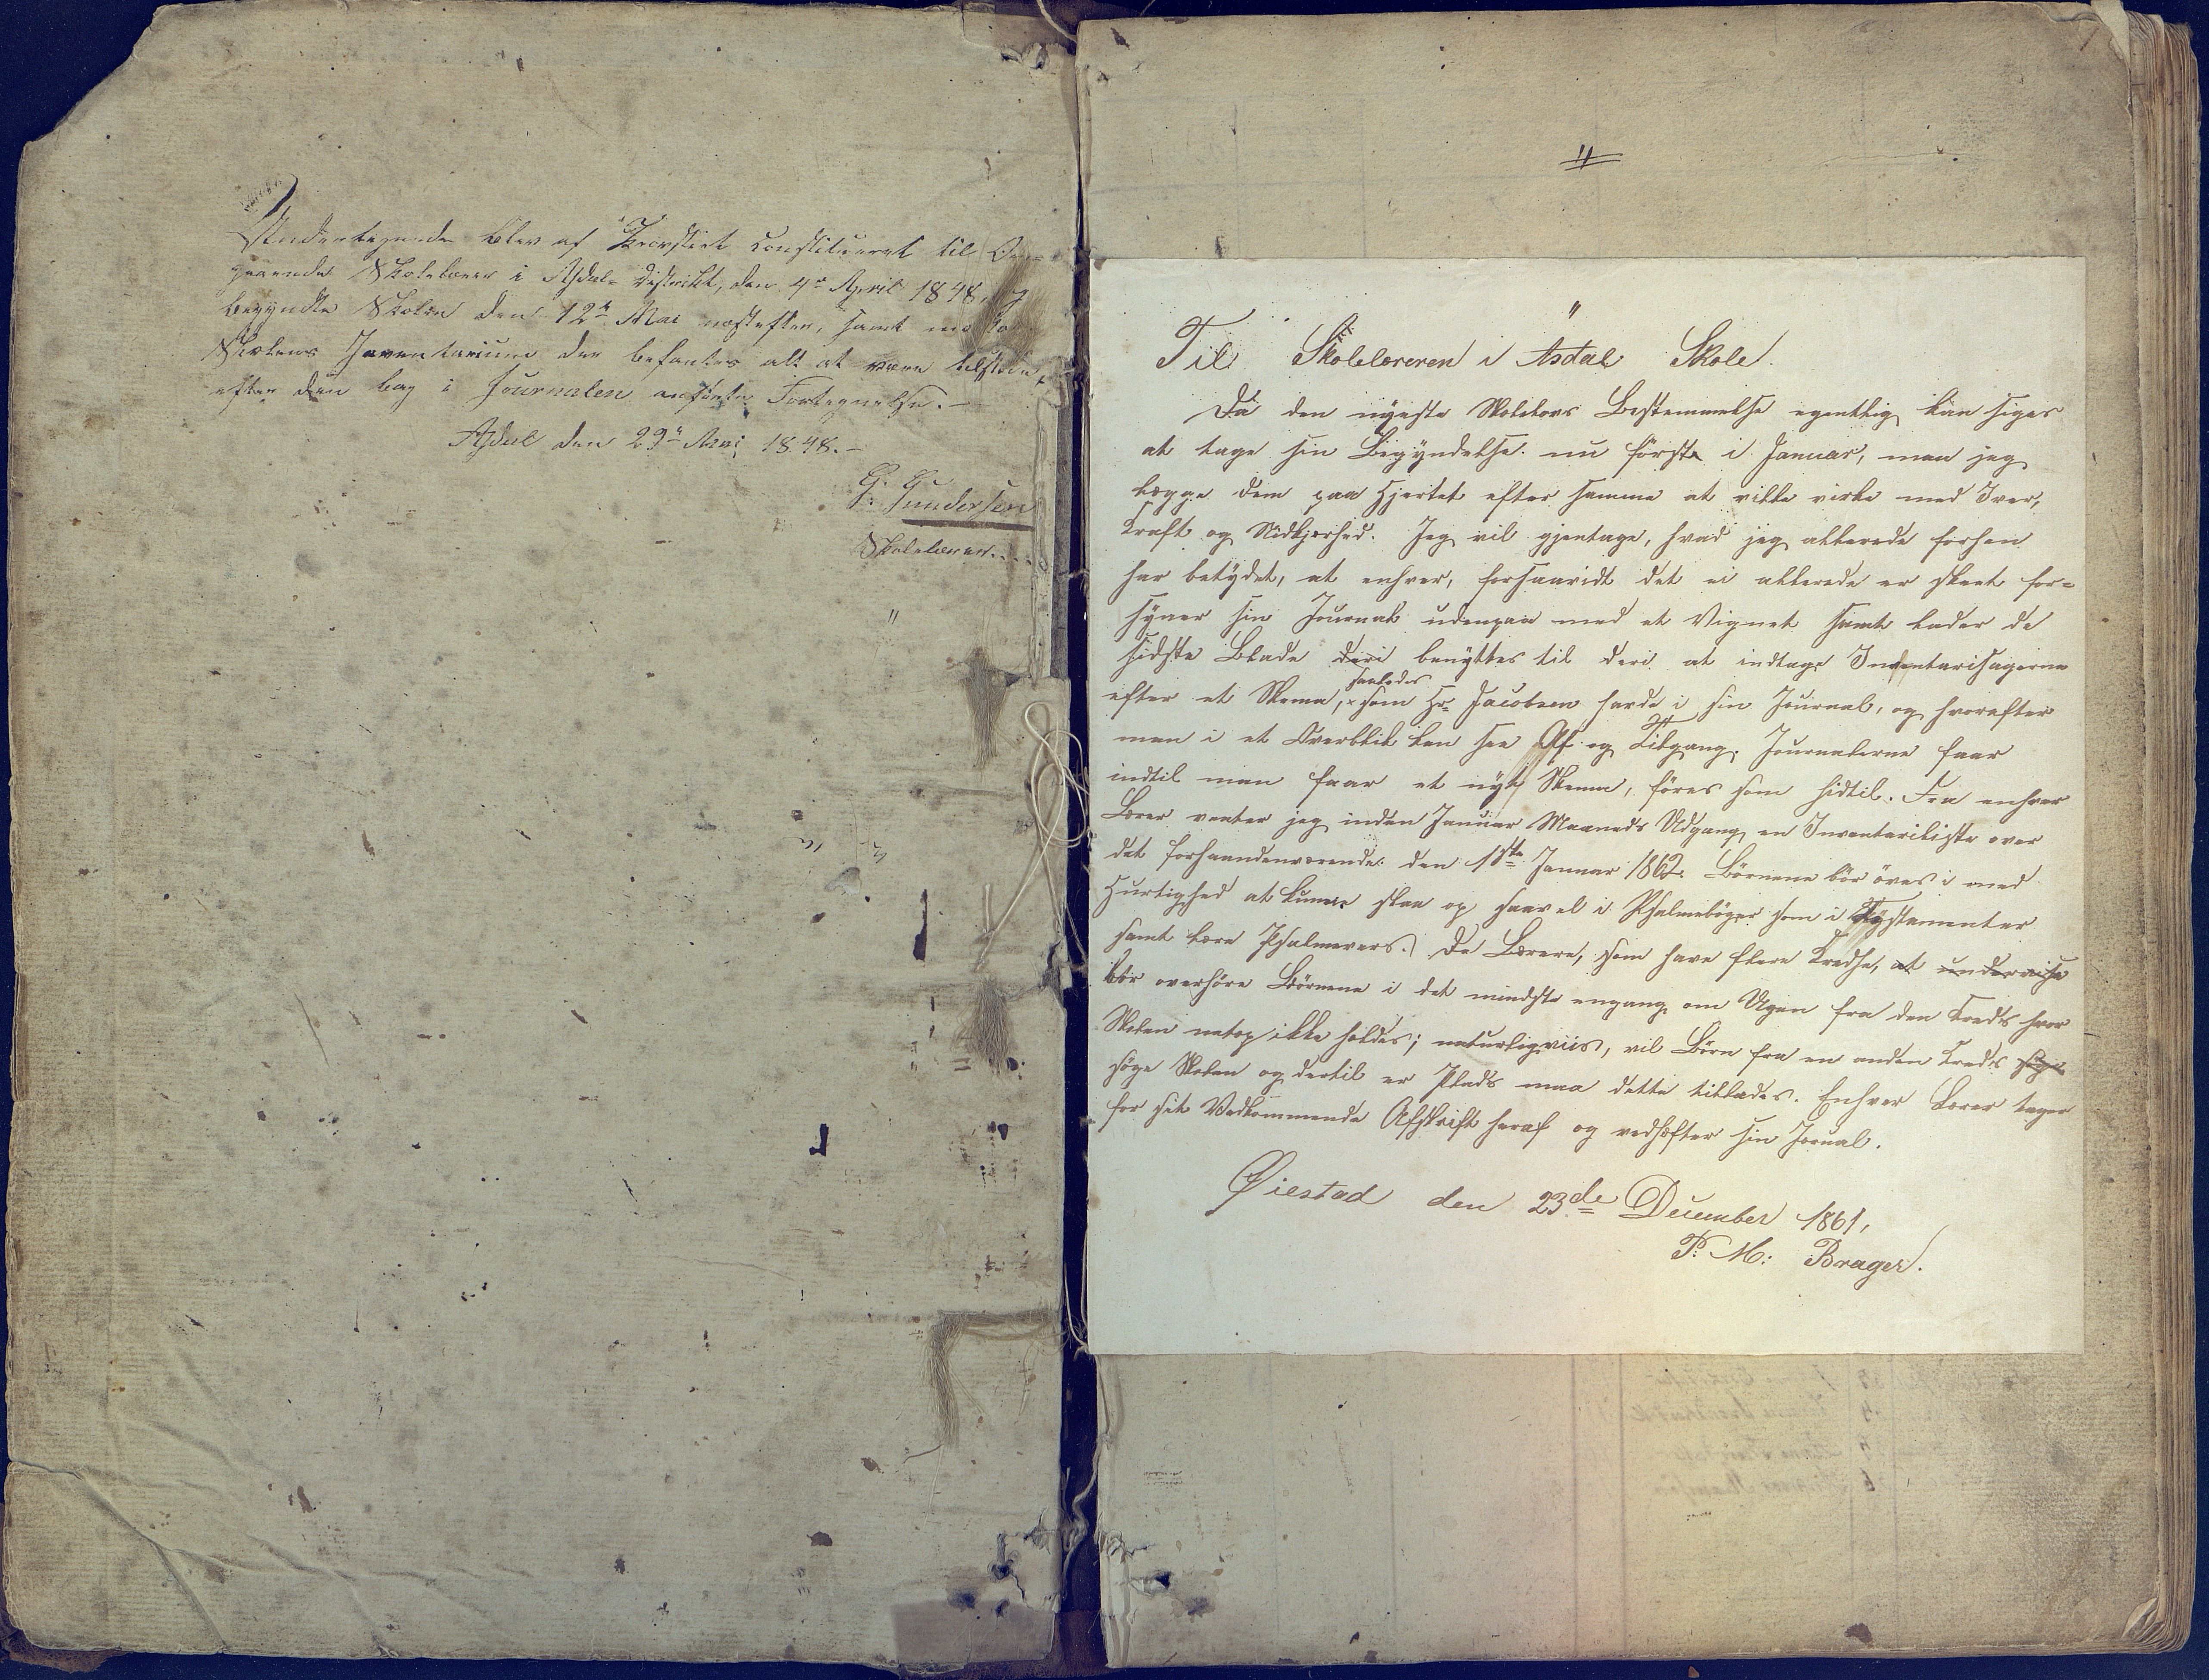 Undertegnede blev af Provstiet constitueret til Om-
gaaende Skolelærer i Asdals District, den 4de April 1848,
begyndte Skolen den 12te Mai næstefter, samt
Skolens Inventarium der befantes alt at være tilstede,
efter den bag i Journalen anførte Fortegnelse.-
Asdal den 29de Mai 1848.-
G. Gundersen
Skolelærer.
Til Skolelæreren i Asdal Skole.
Da den nyeste Skolelovs Bestemmelse egentlig kan siges
at tage sin Begyndelse nu første i Januar, maa jeg
lægge dem paa Hjertet efter samme at ville virke med Iver,
Kraft og Nidkjærhed. Jeg vil gjentage, hvad jeg allerede forhen
har betydet, at enhver, forsaavidt det ei allerede er skeet for-
syner sin Journal udenpaa med et Vignet samt lader de
sidste Blade deri benyttes til deri at indtage Inventarisagerne
efter et Skema, saaledes som Hr. Jacobsen havde i sin Journal, og hvorefter
man i et Overblik kan see Af og Tilgang. Journalerne faar
indtil man faar et nyt Skema, føres som hidtil. Fra enhver
Lærer venter jeg inden Januar Maaneds Udgang en Inventariliste over
det forhaandenværende den 1ste Januar 1862. Børnene bør øves i med
Hurtighed at kunne slaa op saavel i Psalmebøger som i Testamenter
samt lære Psalmevers. De Lærere, som have flere Kredse, at underviise
bør overhøre Børnene i det mindste engang om Ugen fra den Kreds hvor
Skolen netop ikke holdes; naturligviis, vil Børn fra en anden Kreds søge
søge Skolen og dertil er Plads maa dette tillades. Enhver Lærer tager
for sit Vedkommende Afskrift heraf og vedhæfter sin Jornal.
Øiestad den 23de December 1861,
P. M: Brager.